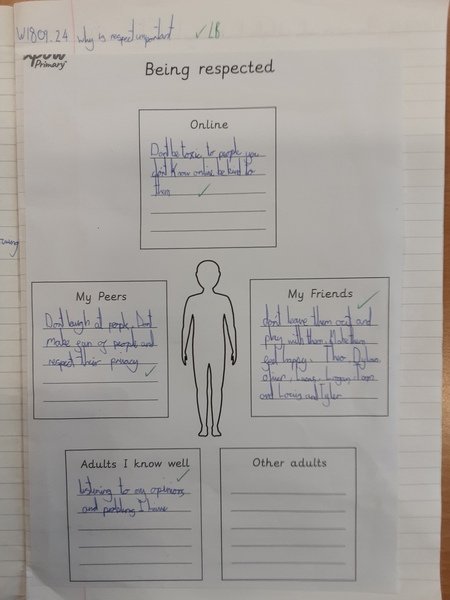 W18.09.24 Why is respect important LB
Primary
Being respected
Online
Don't be toxic to people you
don't know online be kind to
them
My Peers
Dont laugh at people, Dont
make fun of people and
respect their privacy
My Friends
don't leave them out and
play with them, Make them
feel happy. Theo Dylan,
oliver, Lucas, Logan,
and Louis and Tyler
Adults I know well
listening to my opinions
and problems I have
Other adults